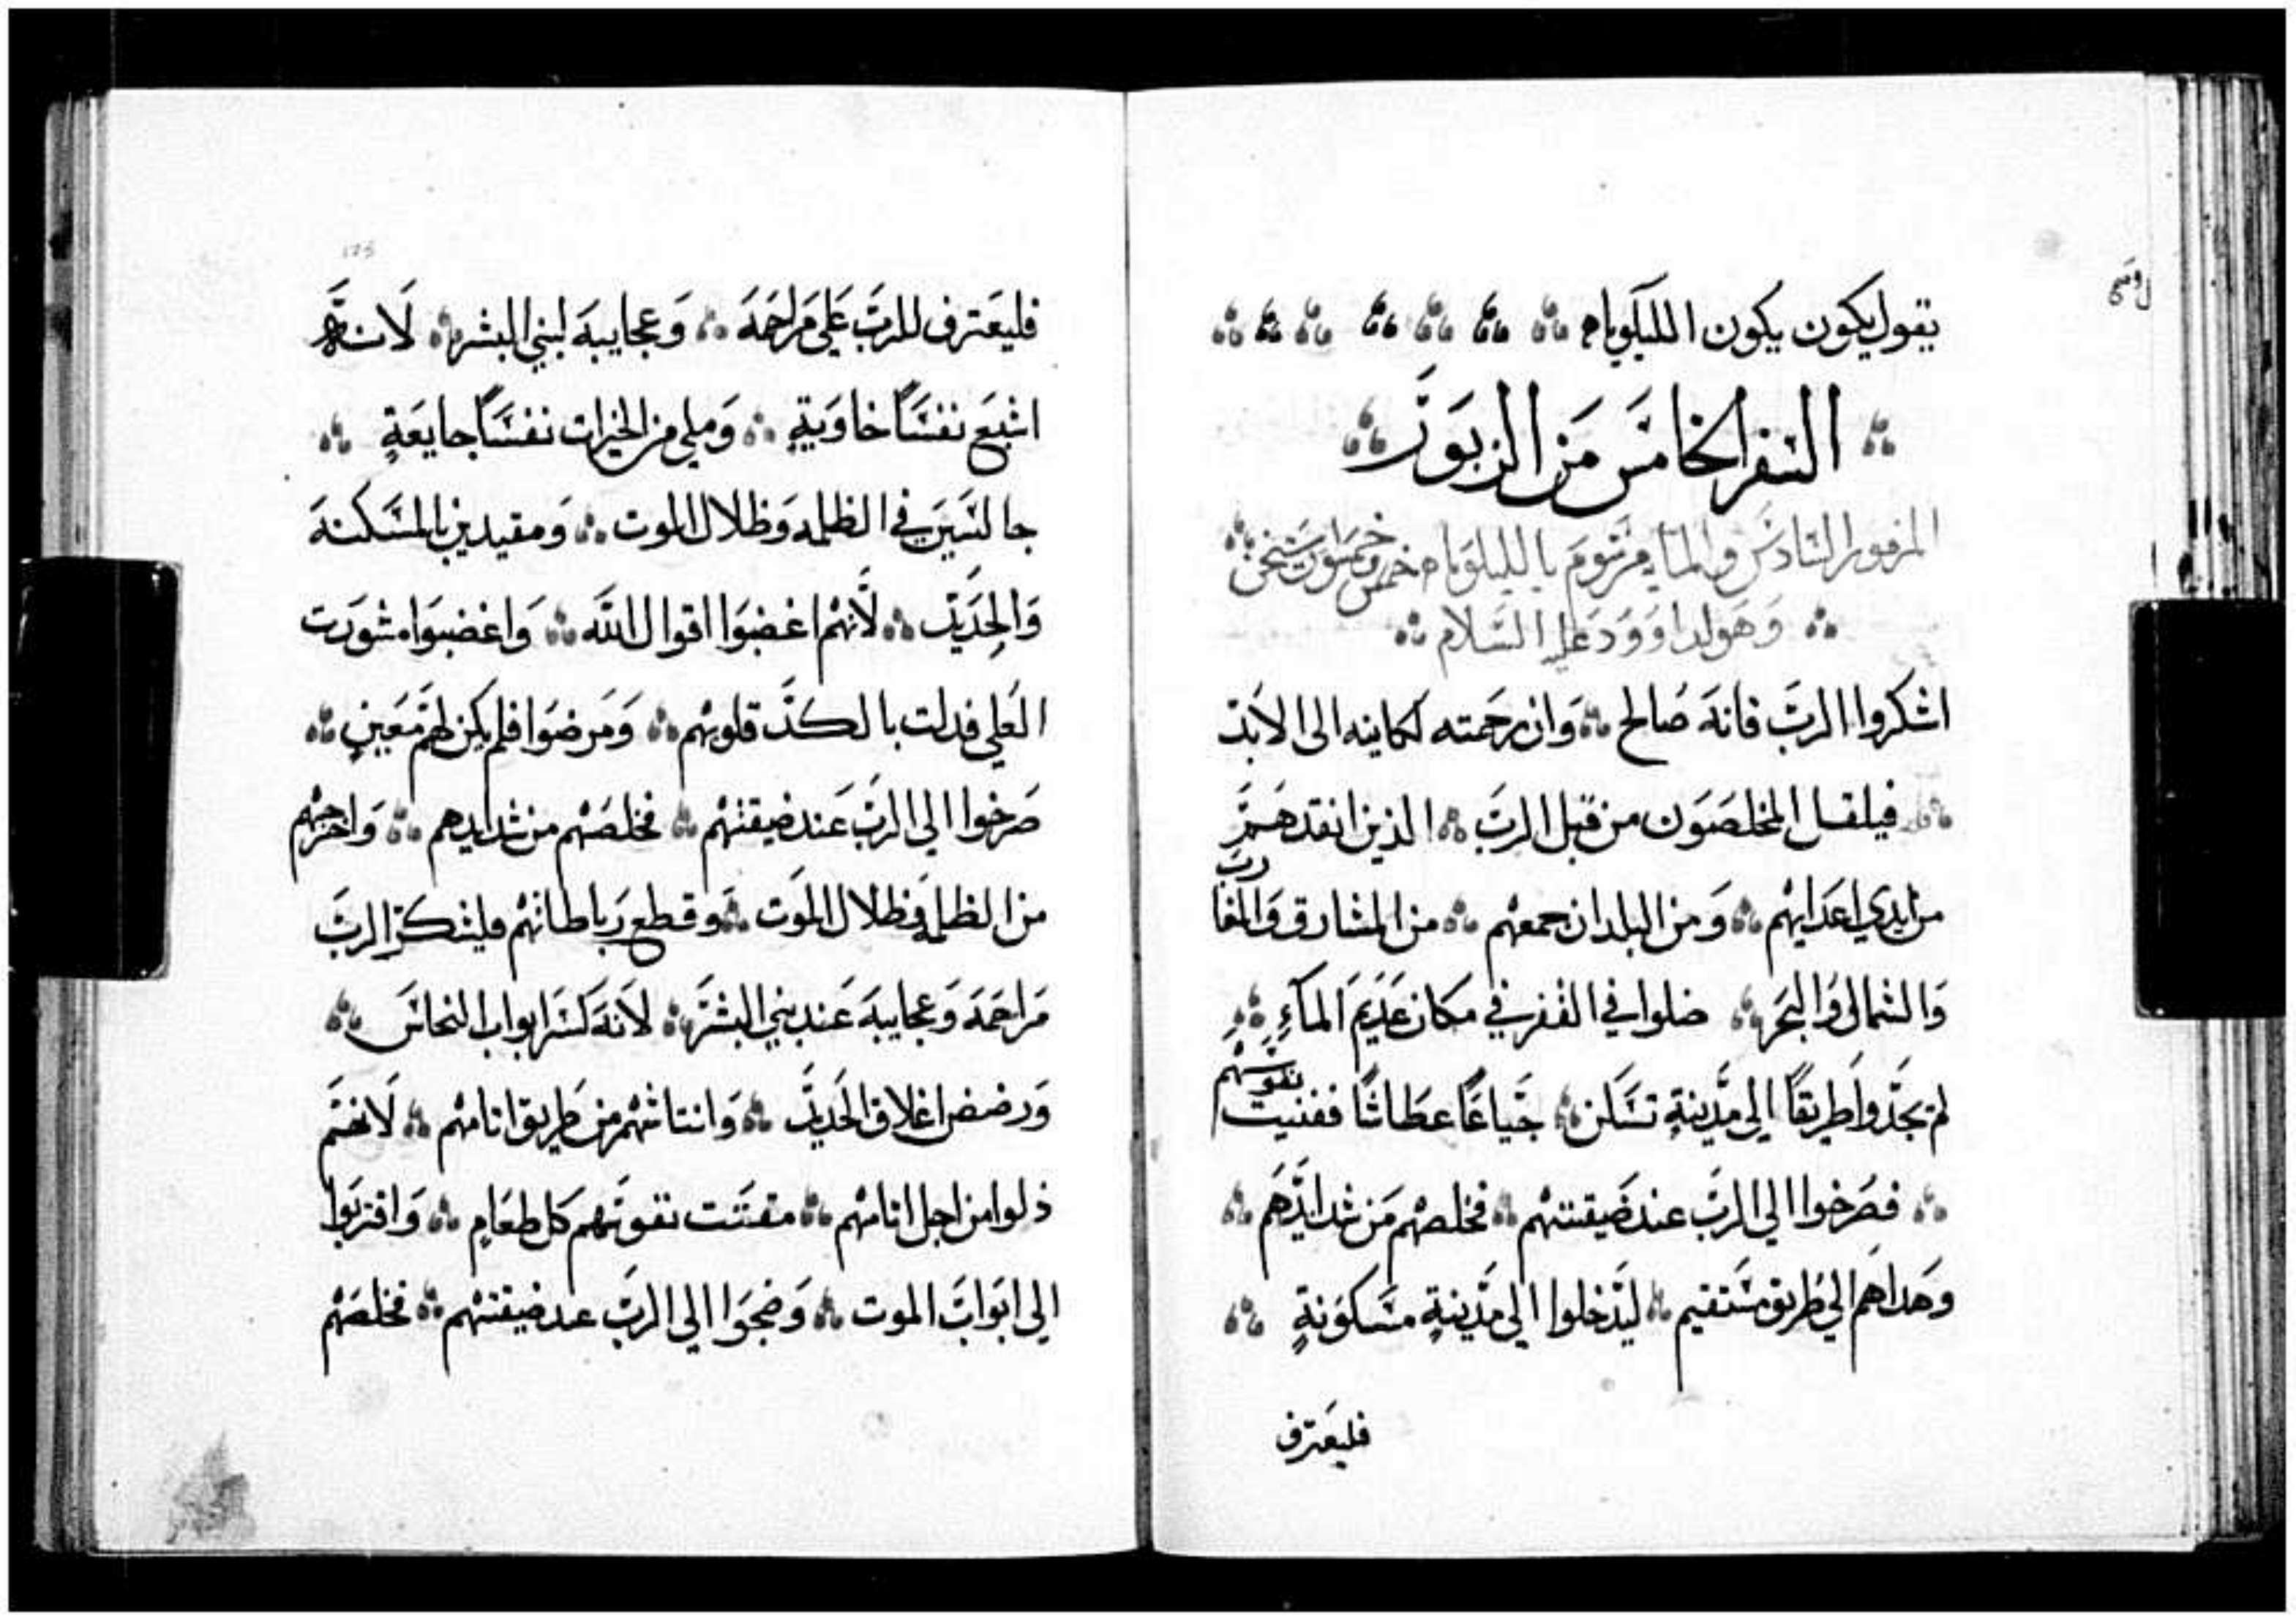 يقول يكون يكون اللليلوياه
السفر الخامس من الزبور
المزمور السادس والماية مرسوم بالليلوياه خمس وخمسون ستيخن
وهو لداوود عليه السلام
اشكروا الرب فانه صالح ۞ وان رحمته لكاينه الى الابد
فيلقل المخلصون من قبل الرب ۞ الذين انقدهم
من ايدي اعدايهم ۞ ومن البلدان جمعهم ۞ من المشارق والمغارب
والشمال والبحر ۞ ضلوا في القفر في مكان عديم المآءِ ۞
لم يجدوا طريقًا الي مدينةٍ تسكن ۞ جياعًا عطاشًا ففنيت نفوسهم
۞ فصرخوا الي الرب عند ضيقتهم ۞ فخلصهم من شدايدهم ۞
وهداهم الي طريق مستقيم ۞ ليدخلوا الي مدينةٍ مسكونةٍ ۞
فليعترف
فليعترف للرب علي مراحمه ۞ وعجايبه لبني البشر ۞ لانه
اشبع نفسًا خاويةٍ ۞ وملي من الخيرات نفسًا جايعةٍ ۞
جالسين في الظلمه وظلال الموت ۞ ومقيدين بالمسكنه
والحديد ۞ لأنهم اغضبوا اقوال الله ۞ واغضبوا مشورت
العلي فدلت بالكد قلوبهم ۞ ومرضوا فلم يكن لهم معينٍ ۞
صرخوا الي الرب عند ضيقتهم ۞ فخلصهم من شدايدهم ۞ واخرجهم
من الظلمه وظلال الموت ۞ وقطع رباطاتهم فليشكر الرب
مراحمه وعجايبه عند بني البشر ۞ لانه كسر ابواب النحاس ۞
ورضض اغلاق الحديد ۞ وانتاشهم من طريق اتامهم ۞ لانهم
ذلوا من اجل اتامهم ۞ مقتت نفوسهم كل طعامٍ ۞ واقتربوا
الي ابواب الموت ۞ وضجوا الي الرب عند ضيقتهم ۞ فخلصهم